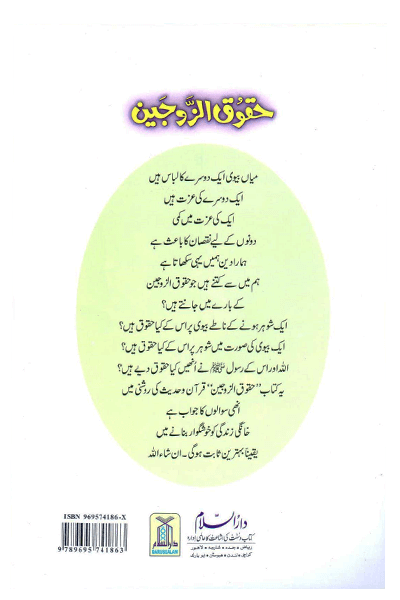 حقوق الزّوجَین
میاں بیوی ایک دوسرے کا لباس ہیں
ایک دوسرے کی عزت ہیں
ایک کی عزت میں کمی
دونوں کے لیے نقصان کا باعث ہے
ہمارا دین ہمیں یہی سکھاتا ہے
ہم میں سے کتنے ہیں جو حقوق الزوجین
کے بارے میں جانتے ہیں؟
ایک شوہر ہونے کے ناطے بیوی پر اس کے کیا حقوق ہیں؟
ایک بیوی کی صورت میں شوہر پر اس کے کیا حقوق ہیں؟
اللہ اور اس کے رسول ﷺ نے انھیں کیا حقوق دیے ہیں؟
یہ کتاب "حقوق الزوجین" قرآن و حدیث کی روشنی میں
انھی سوالوں کا جواب ہے
خانگی زندگی کو خوشگوار بنانے میں
یقیناً بہترین ثابت ہوگی۔ ان شاء اللہ
ISBN 969574186-X
9 789695 741863
دار السلام
DARUSSALAM
دار السلام
کتاب و سنت کی اشاعت کا عالمی ادارہ
ریاض • جدہ • شارجہ • لاہور
کراچی • لندن • ہیوسٹن • نیو یارک